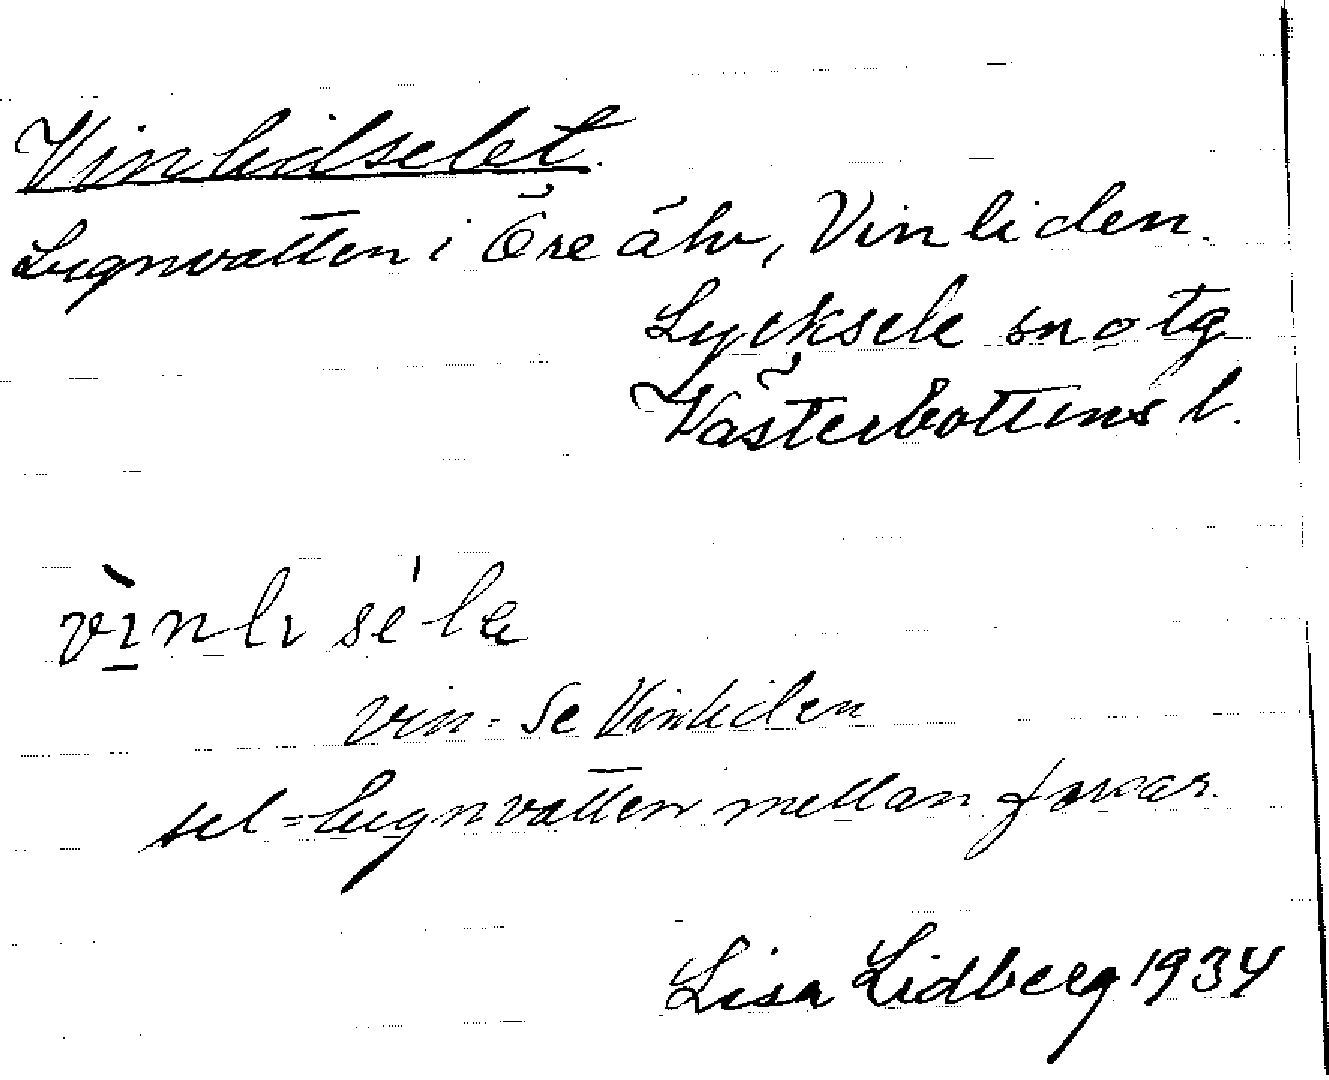 Vinlidselet.
Lugnvatten i Öre älv, Vinliden.
Lycksele sn o tg
Västerbottens l.
vìnlı sé'la
vin- Se Vinliden
sel=lugnvatten mellan forsar.
Lisa Lidberg 1934